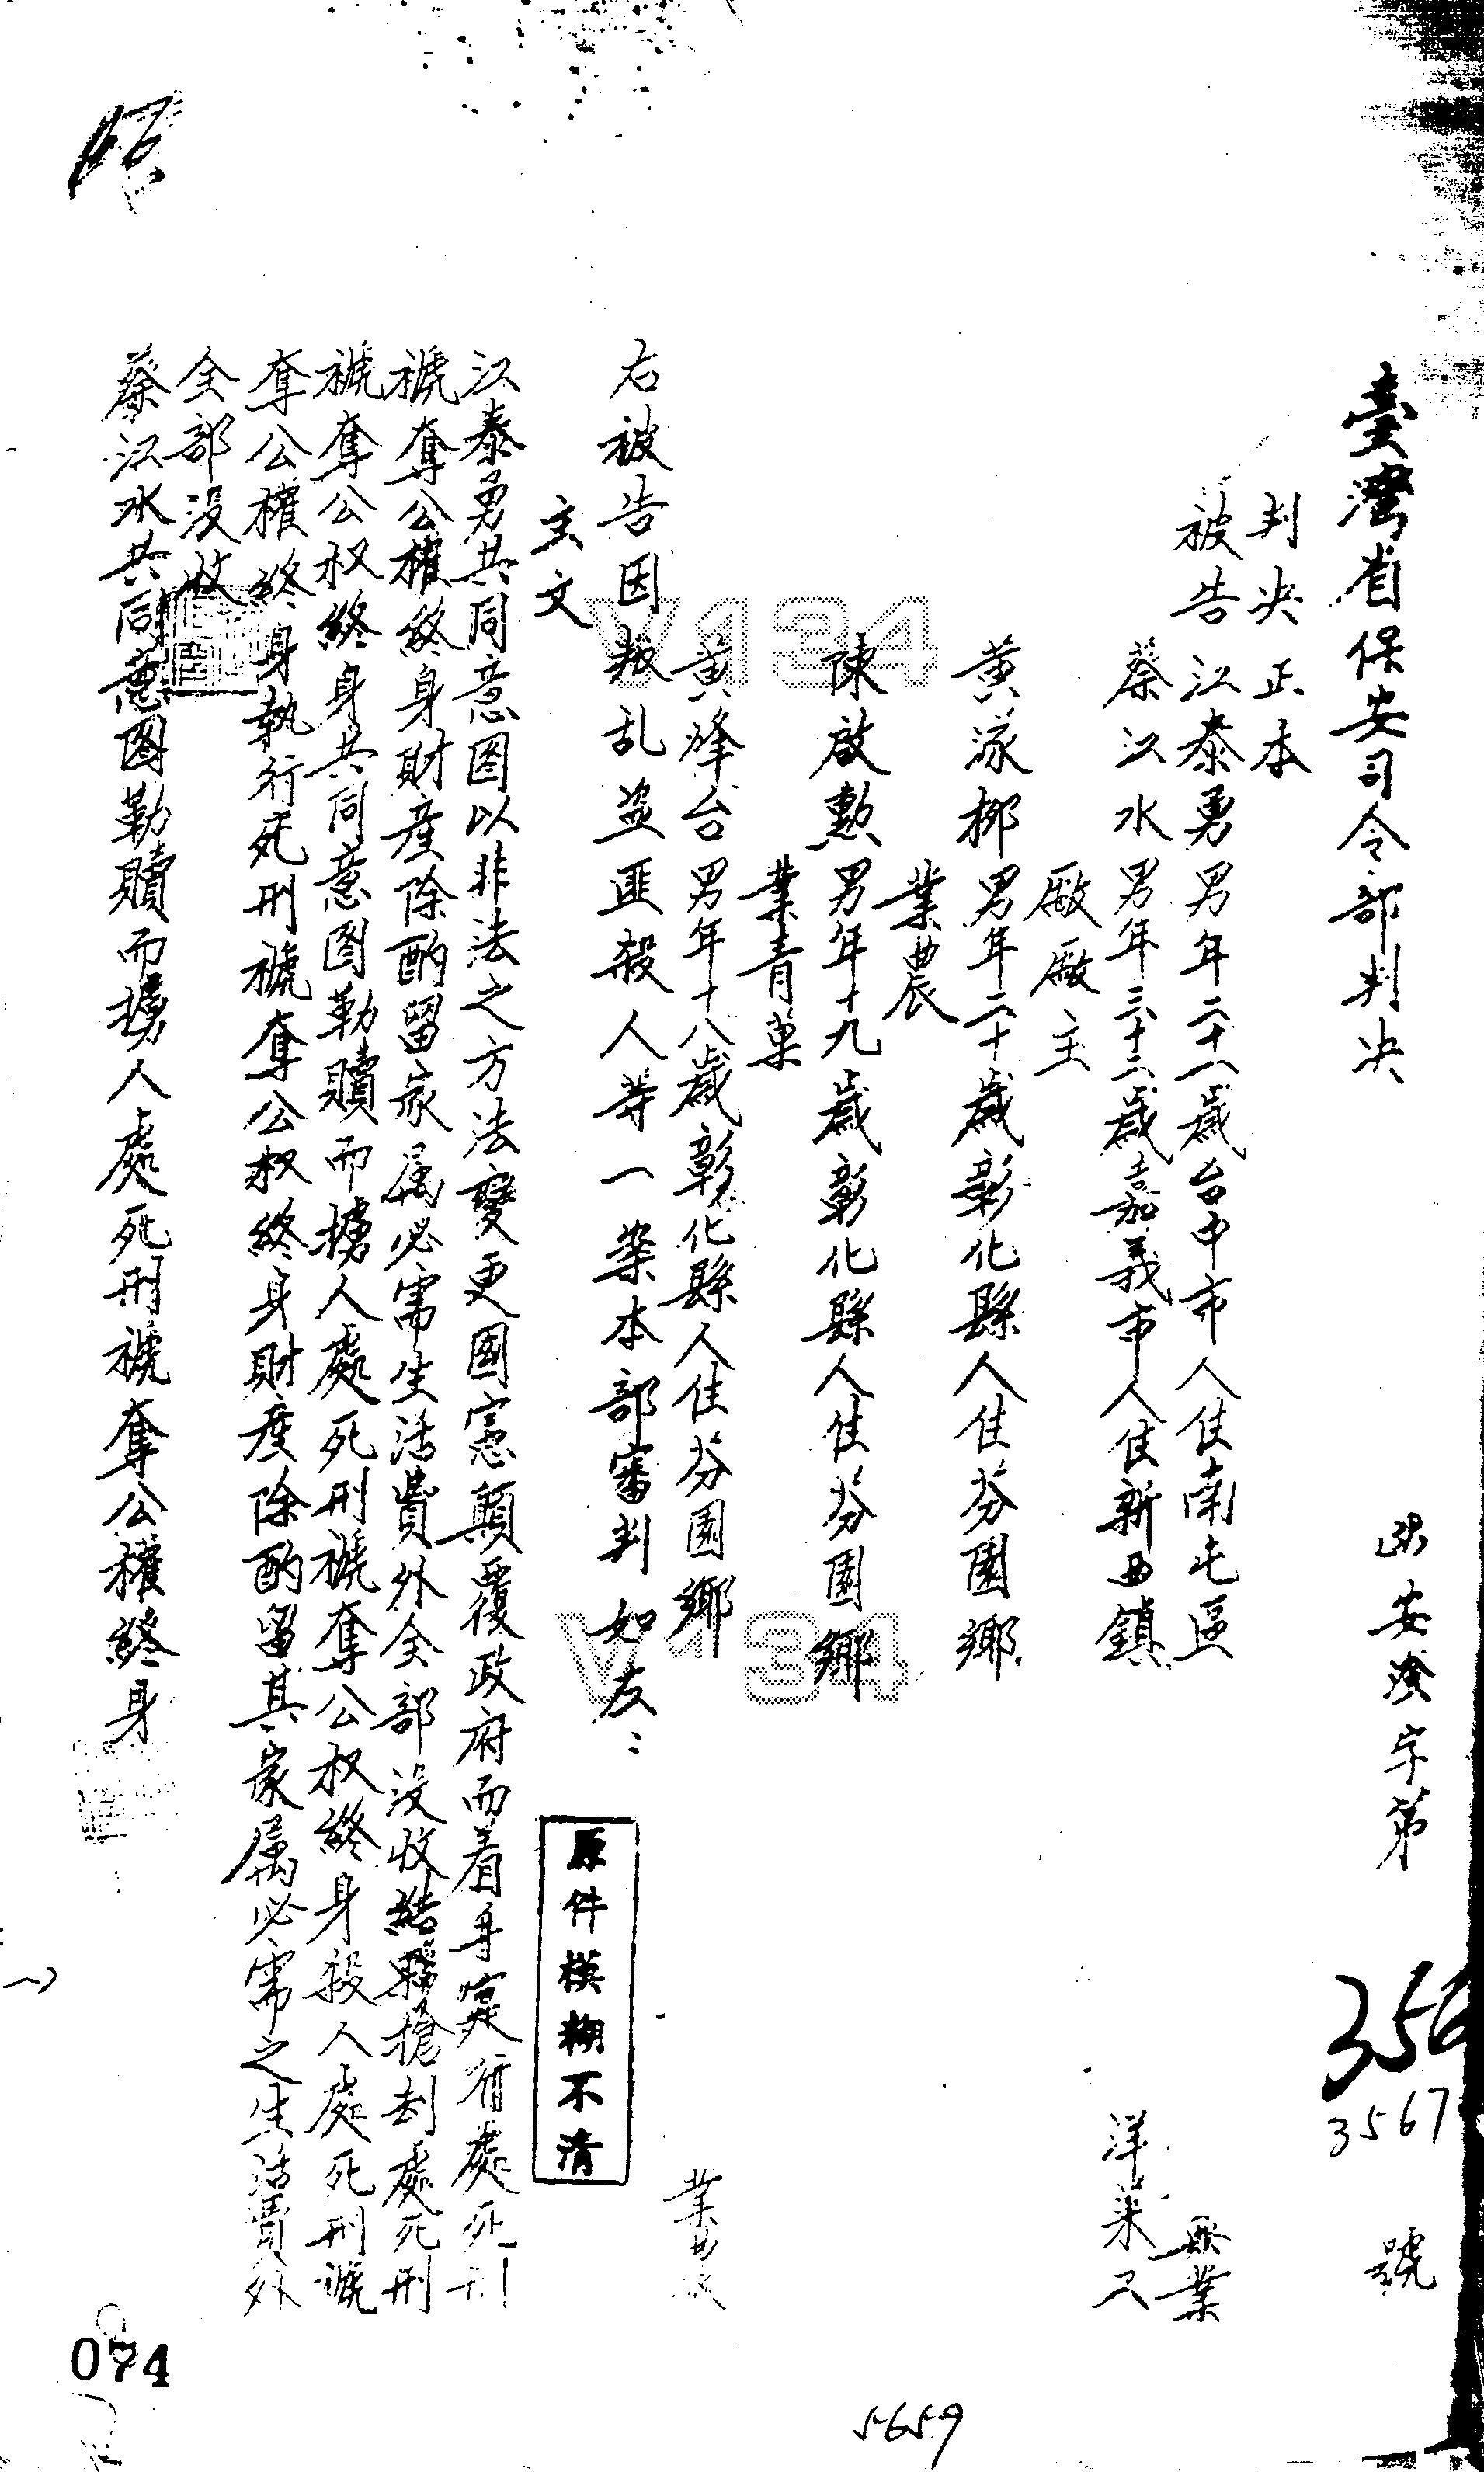 臺灣省保安司令部判决
安潔字第3567號
356
判决正本
被告 江泰勇 男年二十一歲台中市人住南屯區 無業
蔡江水 男年三十二歲嘉義市人住新西鎮 洋菜工
廠廠主
黄添梆 男年二十歲彰化縣人住芬園鄉
業農
陳啟勲 男年十九歲彰化縣人住芬園鄉
業青菓
黄烽台 男年十八歲彰化縣人住芬園鄉 業農
右被告因叛乱盗匪殺人等一案本部審判如左：
主文
江泰勇共同意图以非法之方法變更國憲顛覆政府而着手實行處死刑
褫奪公權終身財産除酌留家属必需生活費外全部没收結夥搶刦處死刑
褫奪公权終身共同意图勒贖而擄人處死刑褫奪公权終身殺人處死刑褫
奪公權終身執行死刑褫奪公权終身財産除酌留其家属必需之生活費外
全部没收
蔡江水共同意图勒贖而擄人處死刑褫奪公權終身
原件模糊不清
V134
V134
074
5659